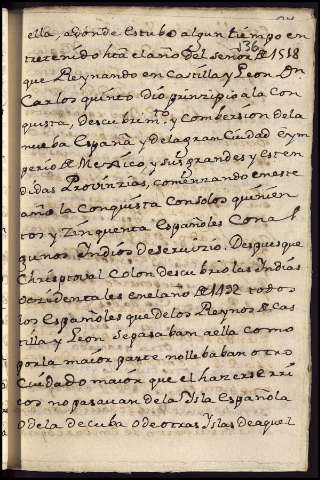 ella, adonde estubo algun tiempo en
tretenido hta el año del señor de 1518
136
que Reynando en Castilla y Leon Dn
Carlos quinto Dio prinzipio a la Con
quista, Descubrimto. y Combersion de la
nueba España y de la gran Ciudad e ym
perio de Mexico y sus grandes y esten
didas Provinzias, comenzando en este
año la Conquista con solos quinien
tos y zinquenta Españoles con al
gunos Indios de servizio. Despues que
Chrisptoval Colon descubrio las Indias
occidentales en el año de 1492 todos
los Españoles que de los Reynos de Cas
tilla y Leon se pasaban a ella como
por la maior parte no llebaban otro
Cuidado maior que el hazerse rri
cos no pasauan de la Isla Española
o de la de Cuba o de otras Yslas de aquel